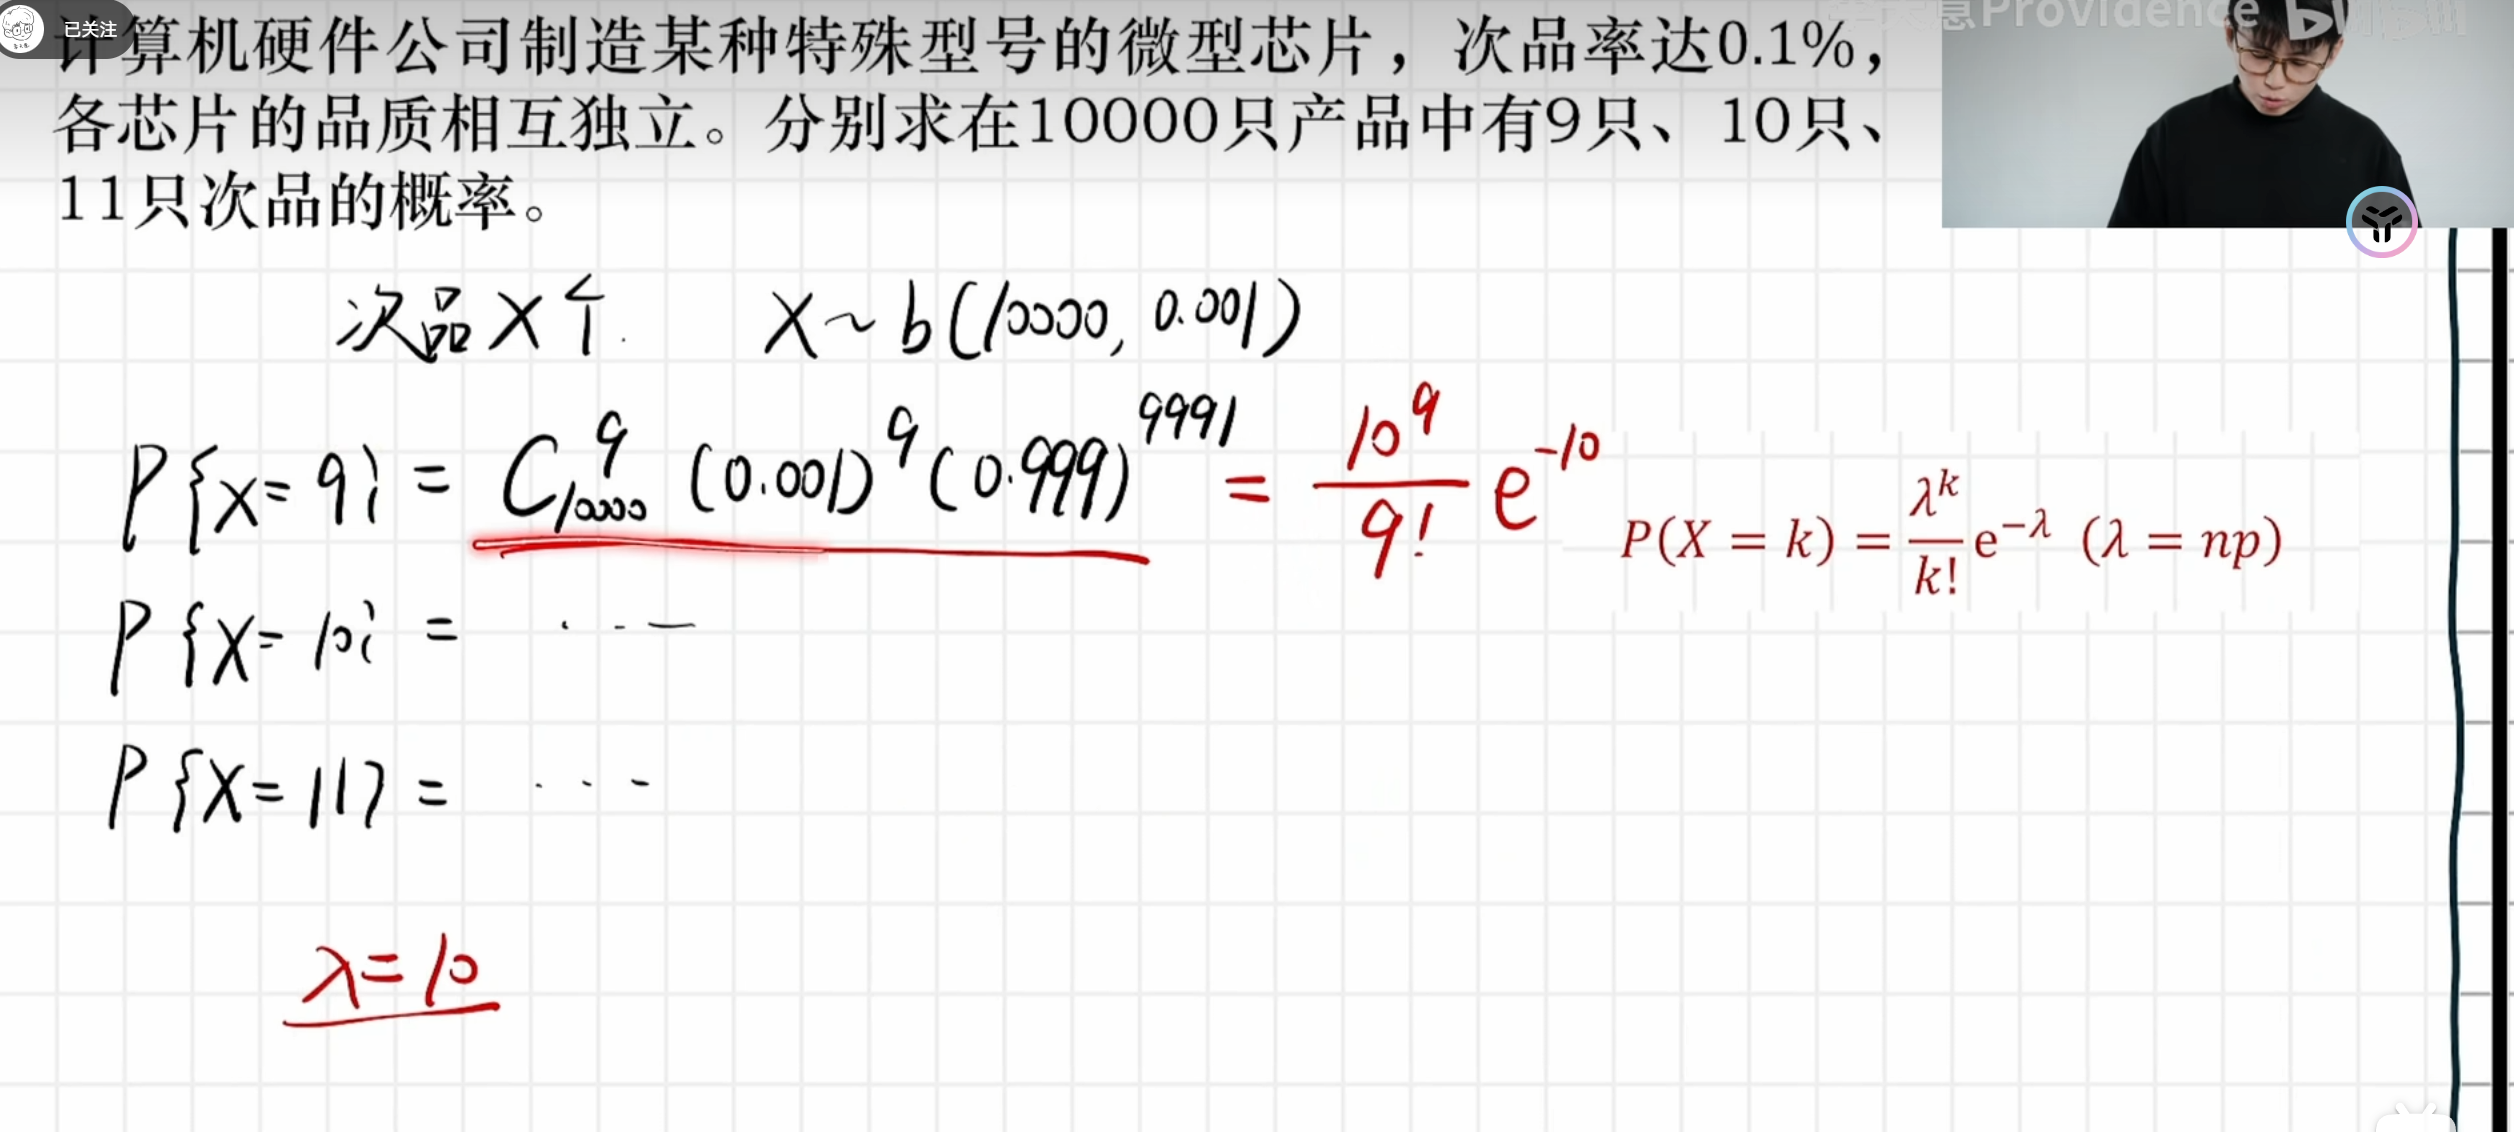 已关注
计算机硬件公司制造某种特殊型号的微型芯片，次品率达0.1%，
各芯片的品质相互独立。分别求在10000只产品中有9只、10只、
11只次品的概率。
Providence bilibili
次品X个. X~b(10000, 0.001)
P{X=9} = C_{10000}^{9} (0.001)^9 (0.999)^{9991} = \frac{10^9}{9!} e^{-10}
P(X = k) = \frac{λ^k}{k!} e^{-λ} (λ = np)
P{X=10} = ...
P{X=11} = ...
λ=10